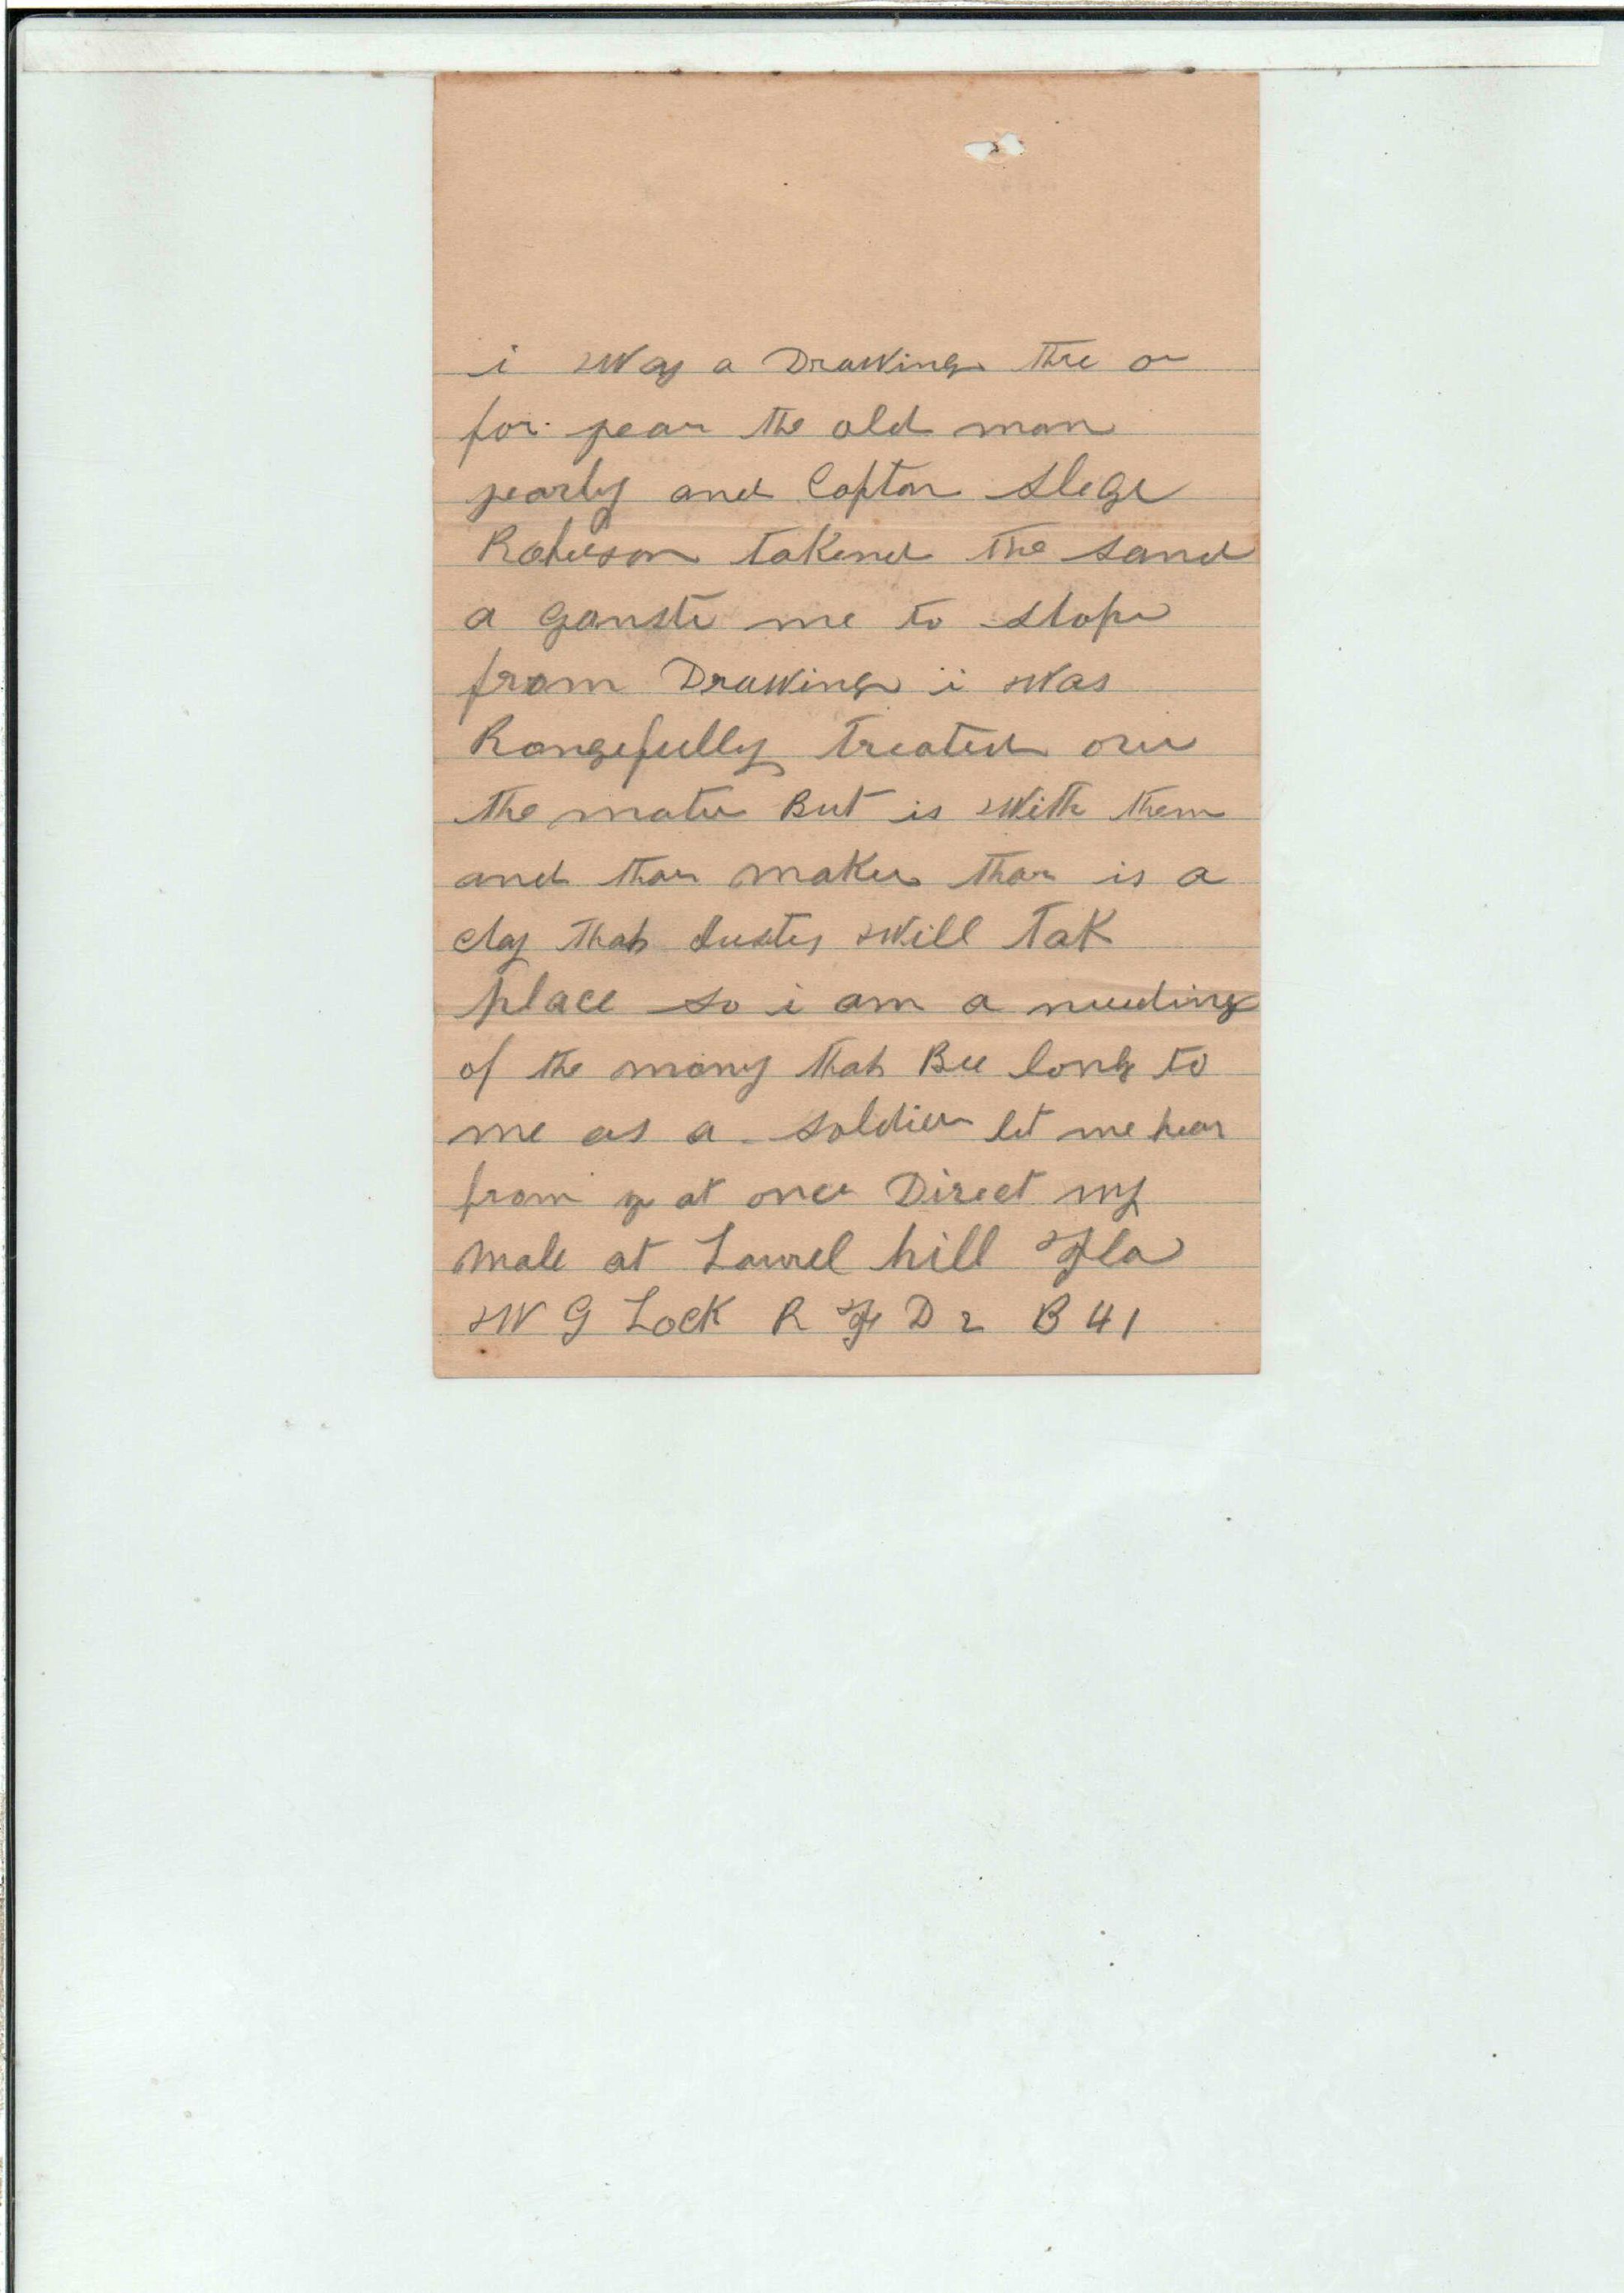 i Way a Drawing thre or
for year the old man
yearly and Capton Slege
Roberson takend the sand
a ganste me to stope
from Drawing i was
Rongefully treated over
the mater But is With them
and thar maker thar is a
day that Justes Will Tak
place so i am a needing
of the mony that Bee long to
me as a soldier let me hear
from yo at once Direct my
male at Laurel hill Fla
W G Lock R F D 2 B 41